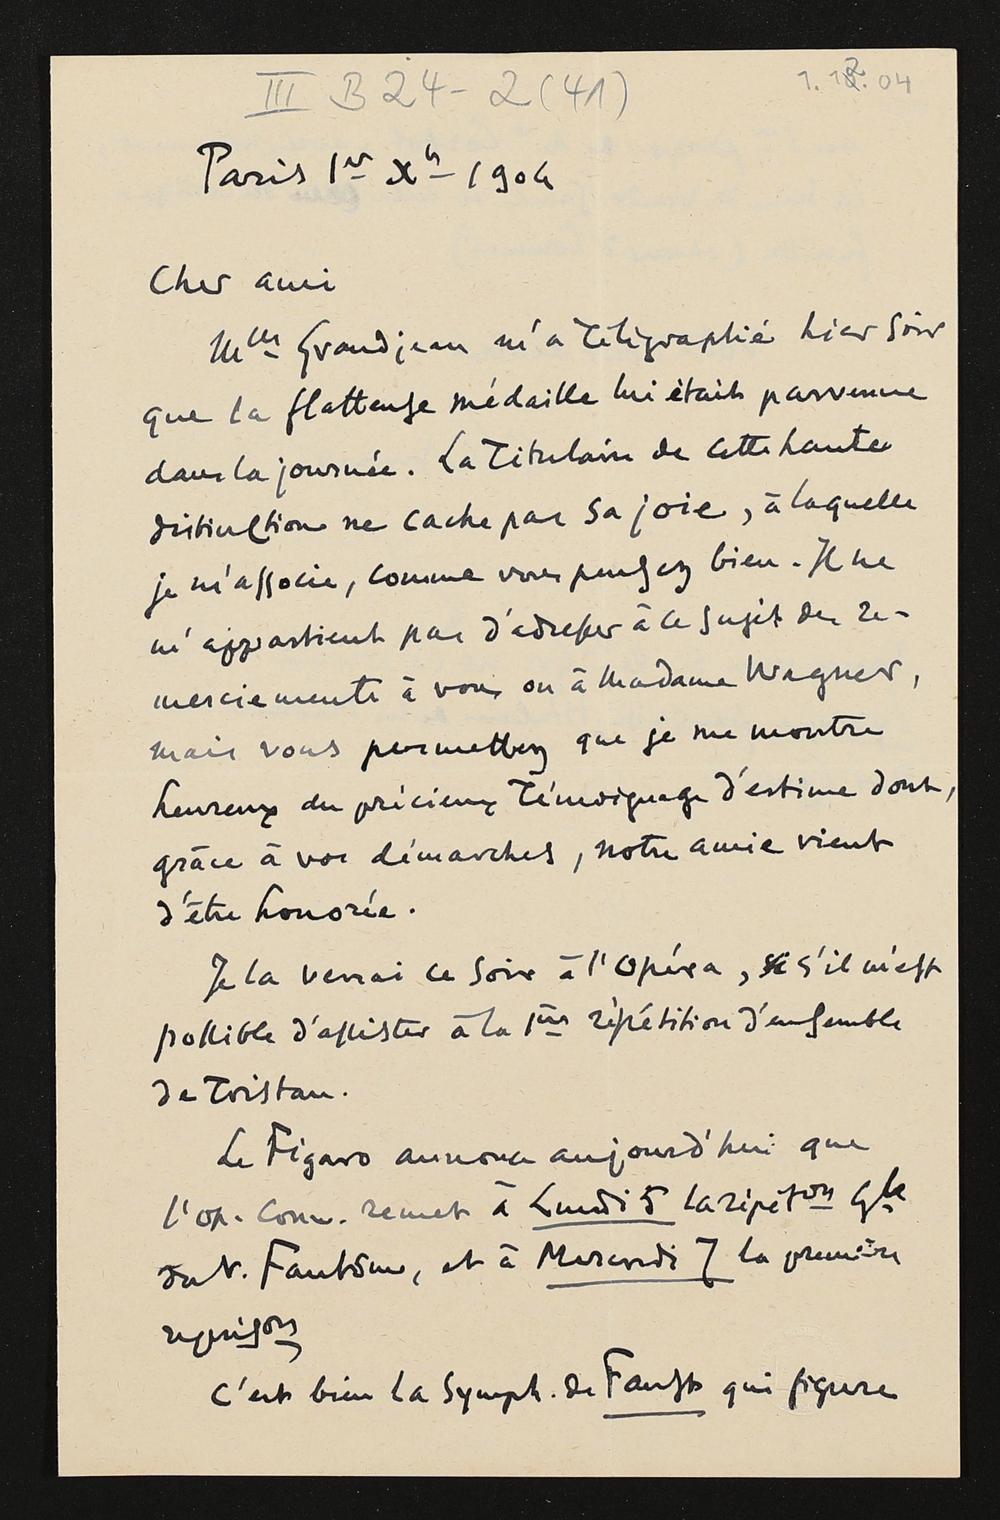 III B 24-2 (41)
1.12.04
Paris 1er Xh 1904
Cher ami
Mlle Grandjean m'a télégraphié hier soir
que la flatteuse médaille lui était parvenue
dans la journée. La titulaire de cette haute
distinction ne cache pas sa joie, à laquelle
je m'associe, comme vous pensez bien. Il ne
m'appartient pas d'adresser à ce sujet des re-
merciements à vous ou à Madame Wagner,
mais vous permettez que je me montre
heureux du précieux témoignage d'estime dont,
grâce à vos démarches, notre amie vient
d'être honorée.
Je la verrai ce soir à l'Opéra, s'il m'est
possible d'assister à la 1ère répétition d'ensemble
de Tristan.
Le Figaro annonce aujourd'hui que
l'op. Com. remet à Lundi 5 la répéton gle
du V. Fantôme, et à Mercredi 7 la première
représon
C'est bien la Symph. de Faust qui figure